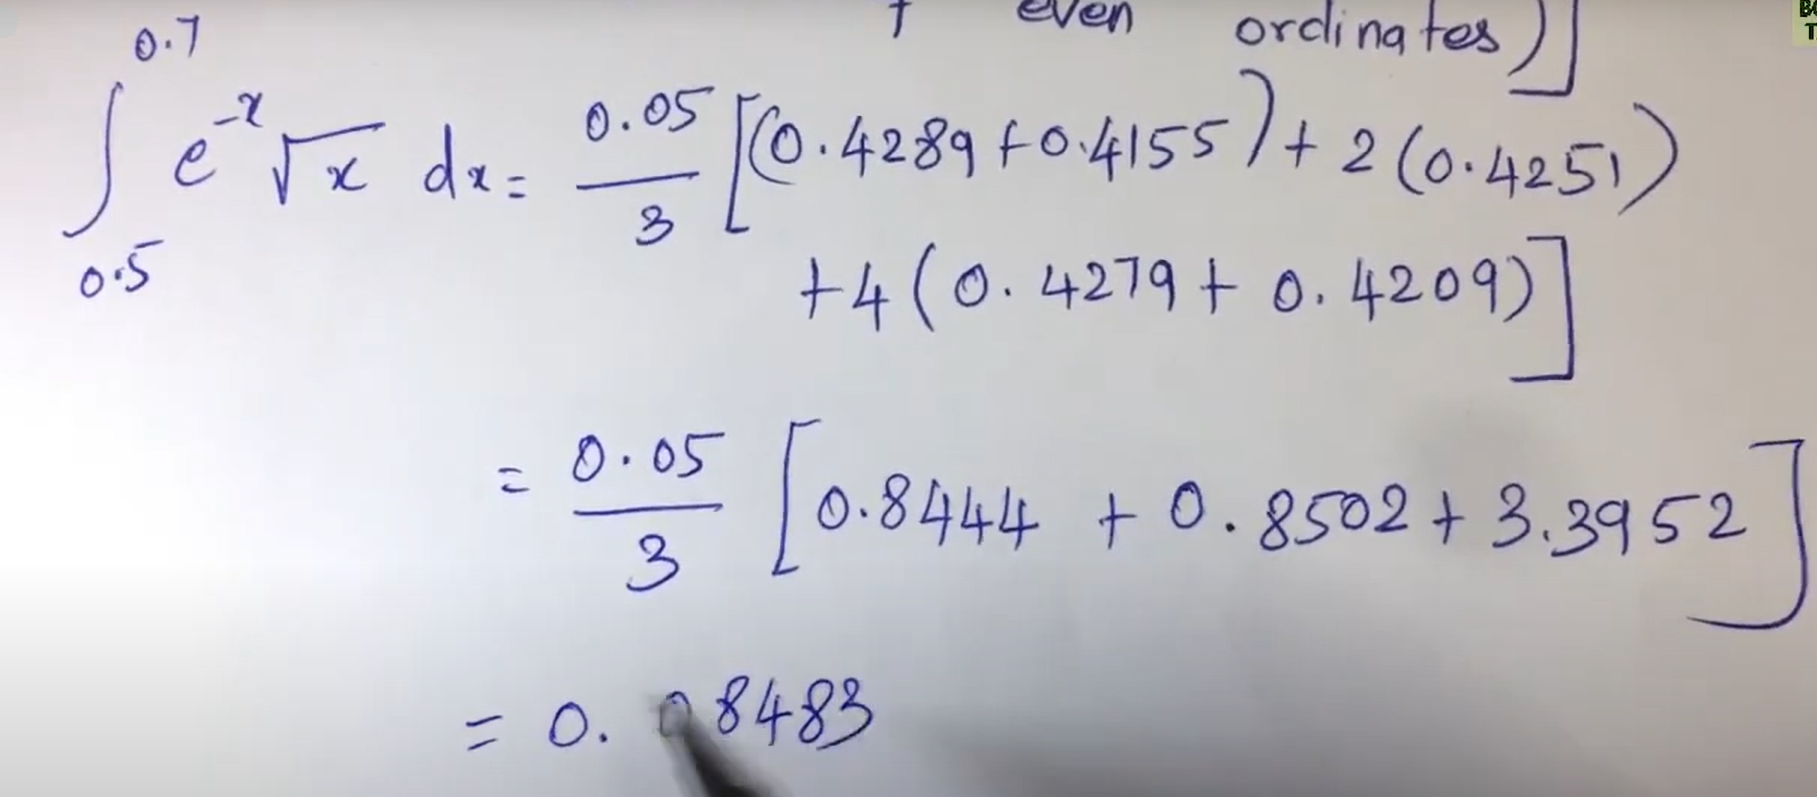 + even ordinates)]
∫_{0.5}^{0.7} e^{-x} √x dx = 0.05/3 [(0.4289+0.4155)+2(0.4251)
+4(0.4279+0.4209)]
= 0.05/3 [0.8444 + 0.8502 + 3.3952]
= 0.08483